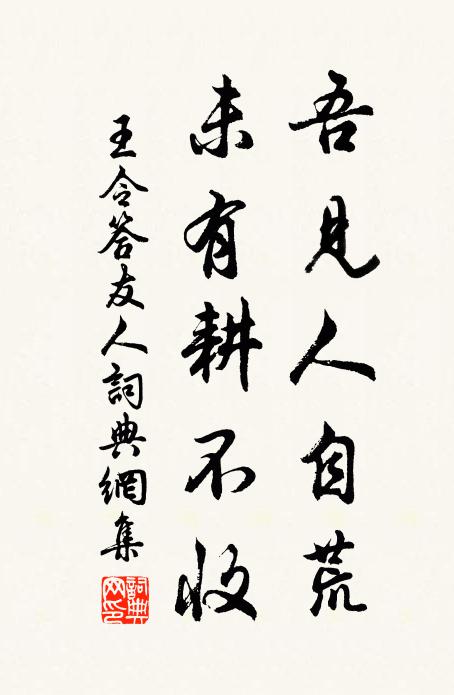 吾見人自荒
未有耕不收
王令答友人詞典網集
詞典
网印